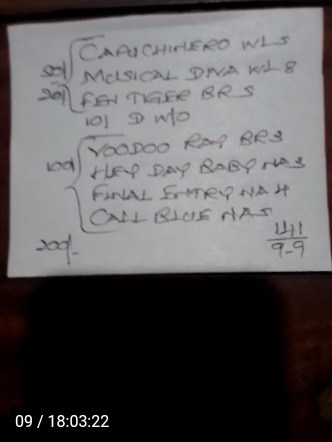 50/ CAPUCHINERO WLS
MUSICAL DIVA WL 8
20/ FEN TIGER BR.S
10/ D W/O
100/ VOODOO RAY BR3
HEY DAY BABY NA3
FINAL ENTRY NA 4
CALL BLUE NA5
200/-
141
9-9
09 / 18:03:22